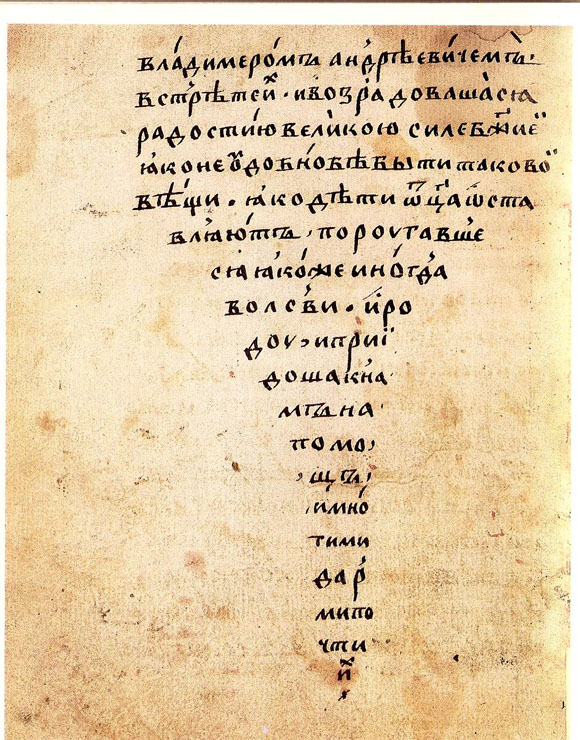 вла́димеро́мъ андрѣеви́чемъ·
встрѣтеиⷯ · ивозрадовашасꙗ
радости́ю вели́кою силе бж҃иеⷪ҇
ꙗ́ко неꙋдобно бѣ быти таково
вѣ́щи · ꙗко дѣти ѿц҃а ѡста
влꙗю́тъ, пороугавше
сꙗ ꙗко́же ино́гда
волсви · и́ро
доу, и прии
доша кна
мъ на
помо,
щъ,
имно
гими
дар
мипо
чти
иⷯ